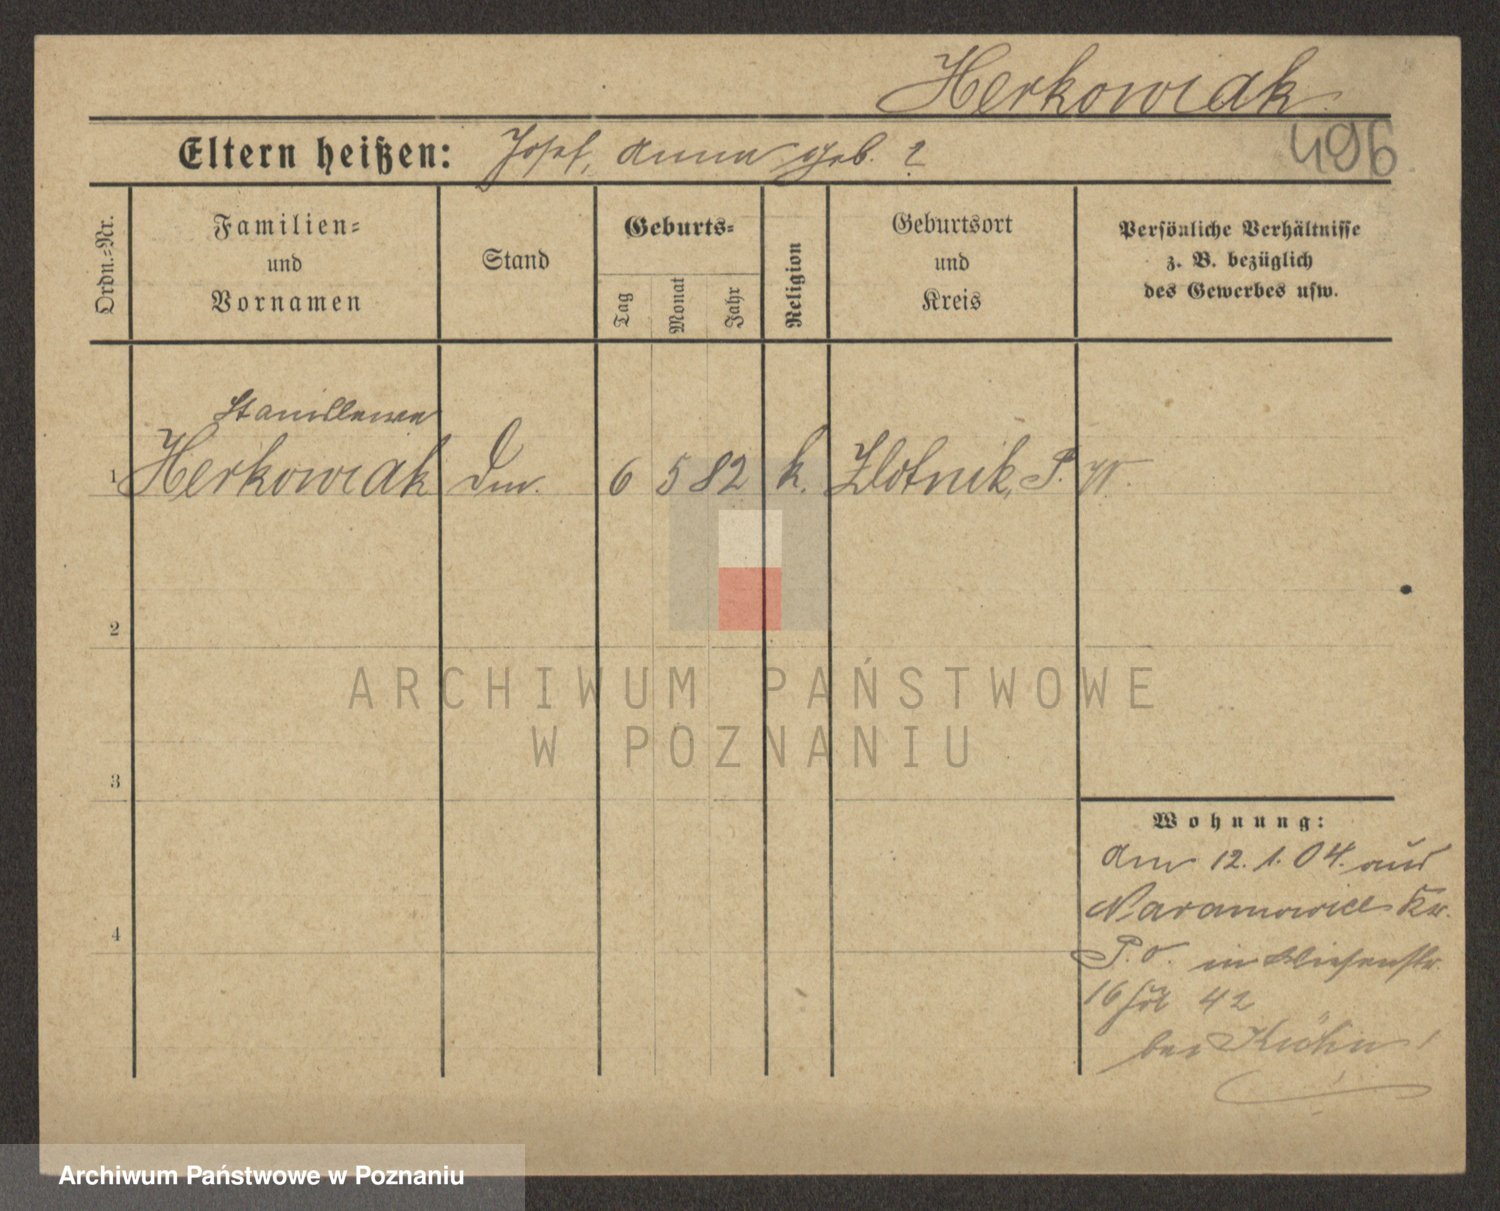 Herkowiak
Eltern heißen: Josef, Anna geb. ?
496
Ordn.=Nr.
Familien=
und
Vornamen
Stand
Geburts=
Tag
Monat
Jahr
Religion
Geburtsort
und
Kreis
Persönliche Verhältnisse
z. B. bezüglich
des Gewerbes usw.
Stanislawa
1 Herkowiak 6 5 82 k. Zlotnik, P. W.
2
3
4
Wohnung:
Am 12.1.04. aus
Naramowice Kr.
P. O. in
16 42
bei
ARCHIWUM PAŃSTWOWE
W POZNANIU
Archiwum Państwowe w Poznaniu